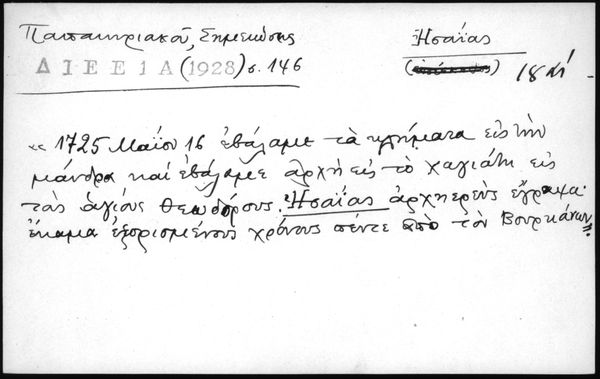 Παπακυριακοῦ, Σημειώσεις
Ἠσαΐας
ΔΙΕΕ 1Α (1928) σ. 146
« 1725 Μαΐου 16 ἐβάλαμε τὰ κτήματα εἰς τὴν
μάνδρα καὶ ἐβάλαμε ἀρχὴ εἰς τὸ χαγιάτι εἰς
τοὺς ἁγίους Θεωδόρους. Ἠσαΐας ἀρχηερεὺς ἔγραψα.
ἔκαμα ἐξορισμένους χρόνους πέντε ἀπὸ τὸν Βουρκάνων»